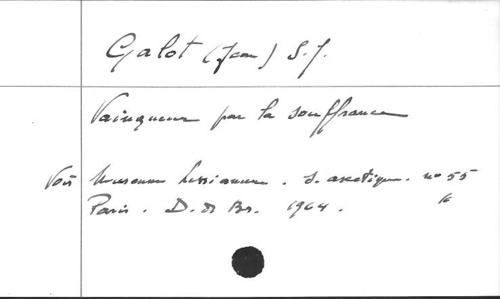 Galot (Jean) S.J.
Vainqueur par la souffrance
Voir Museum Lessianum. S. ascétique. n° 55
Paris. D. de Br. 1964. 16